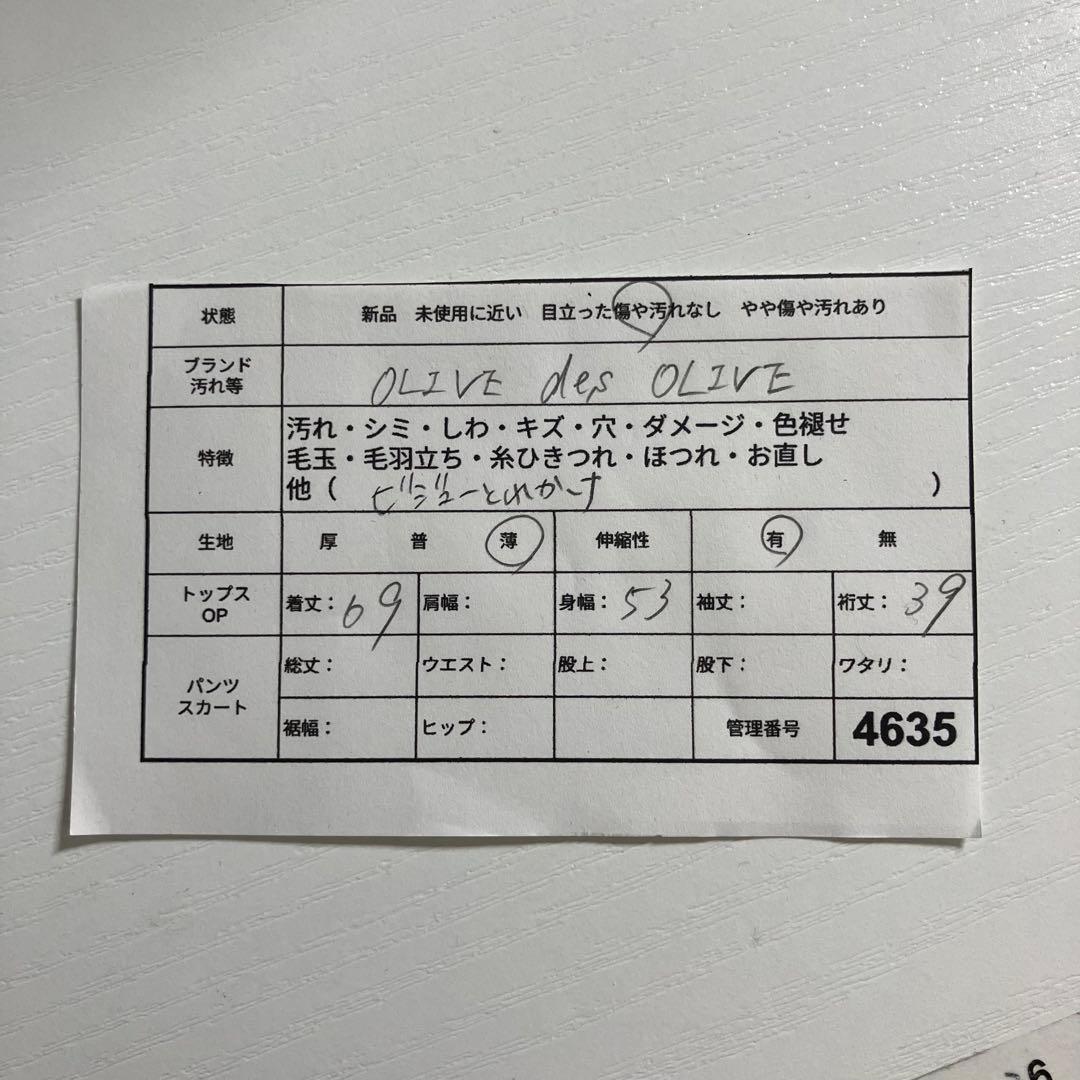 状態 新品 未使用に近い 目立った傷や汚れなし やや傷や汚れあり
ブランド
汚れ等
OLIVE des OLIVE
特徴
汚れ・シミ・しわ・キズ・穴・ダメージ・色褪せ
毛玉・毛羽立ち・糸ひきつれ・ほつれ・お直し
他（ ビジューとれかけ ）
生地 厚 普 薄 伸縮性 有 無
トップス
OP
着丈：69 肩幅： 身幅：53 袖丈： 裄丈：39
パンツ
スカート
総丈： ウエスト： 股上： 股下： ワタリ：
裾幅： ヒップ： 管理番号 4635